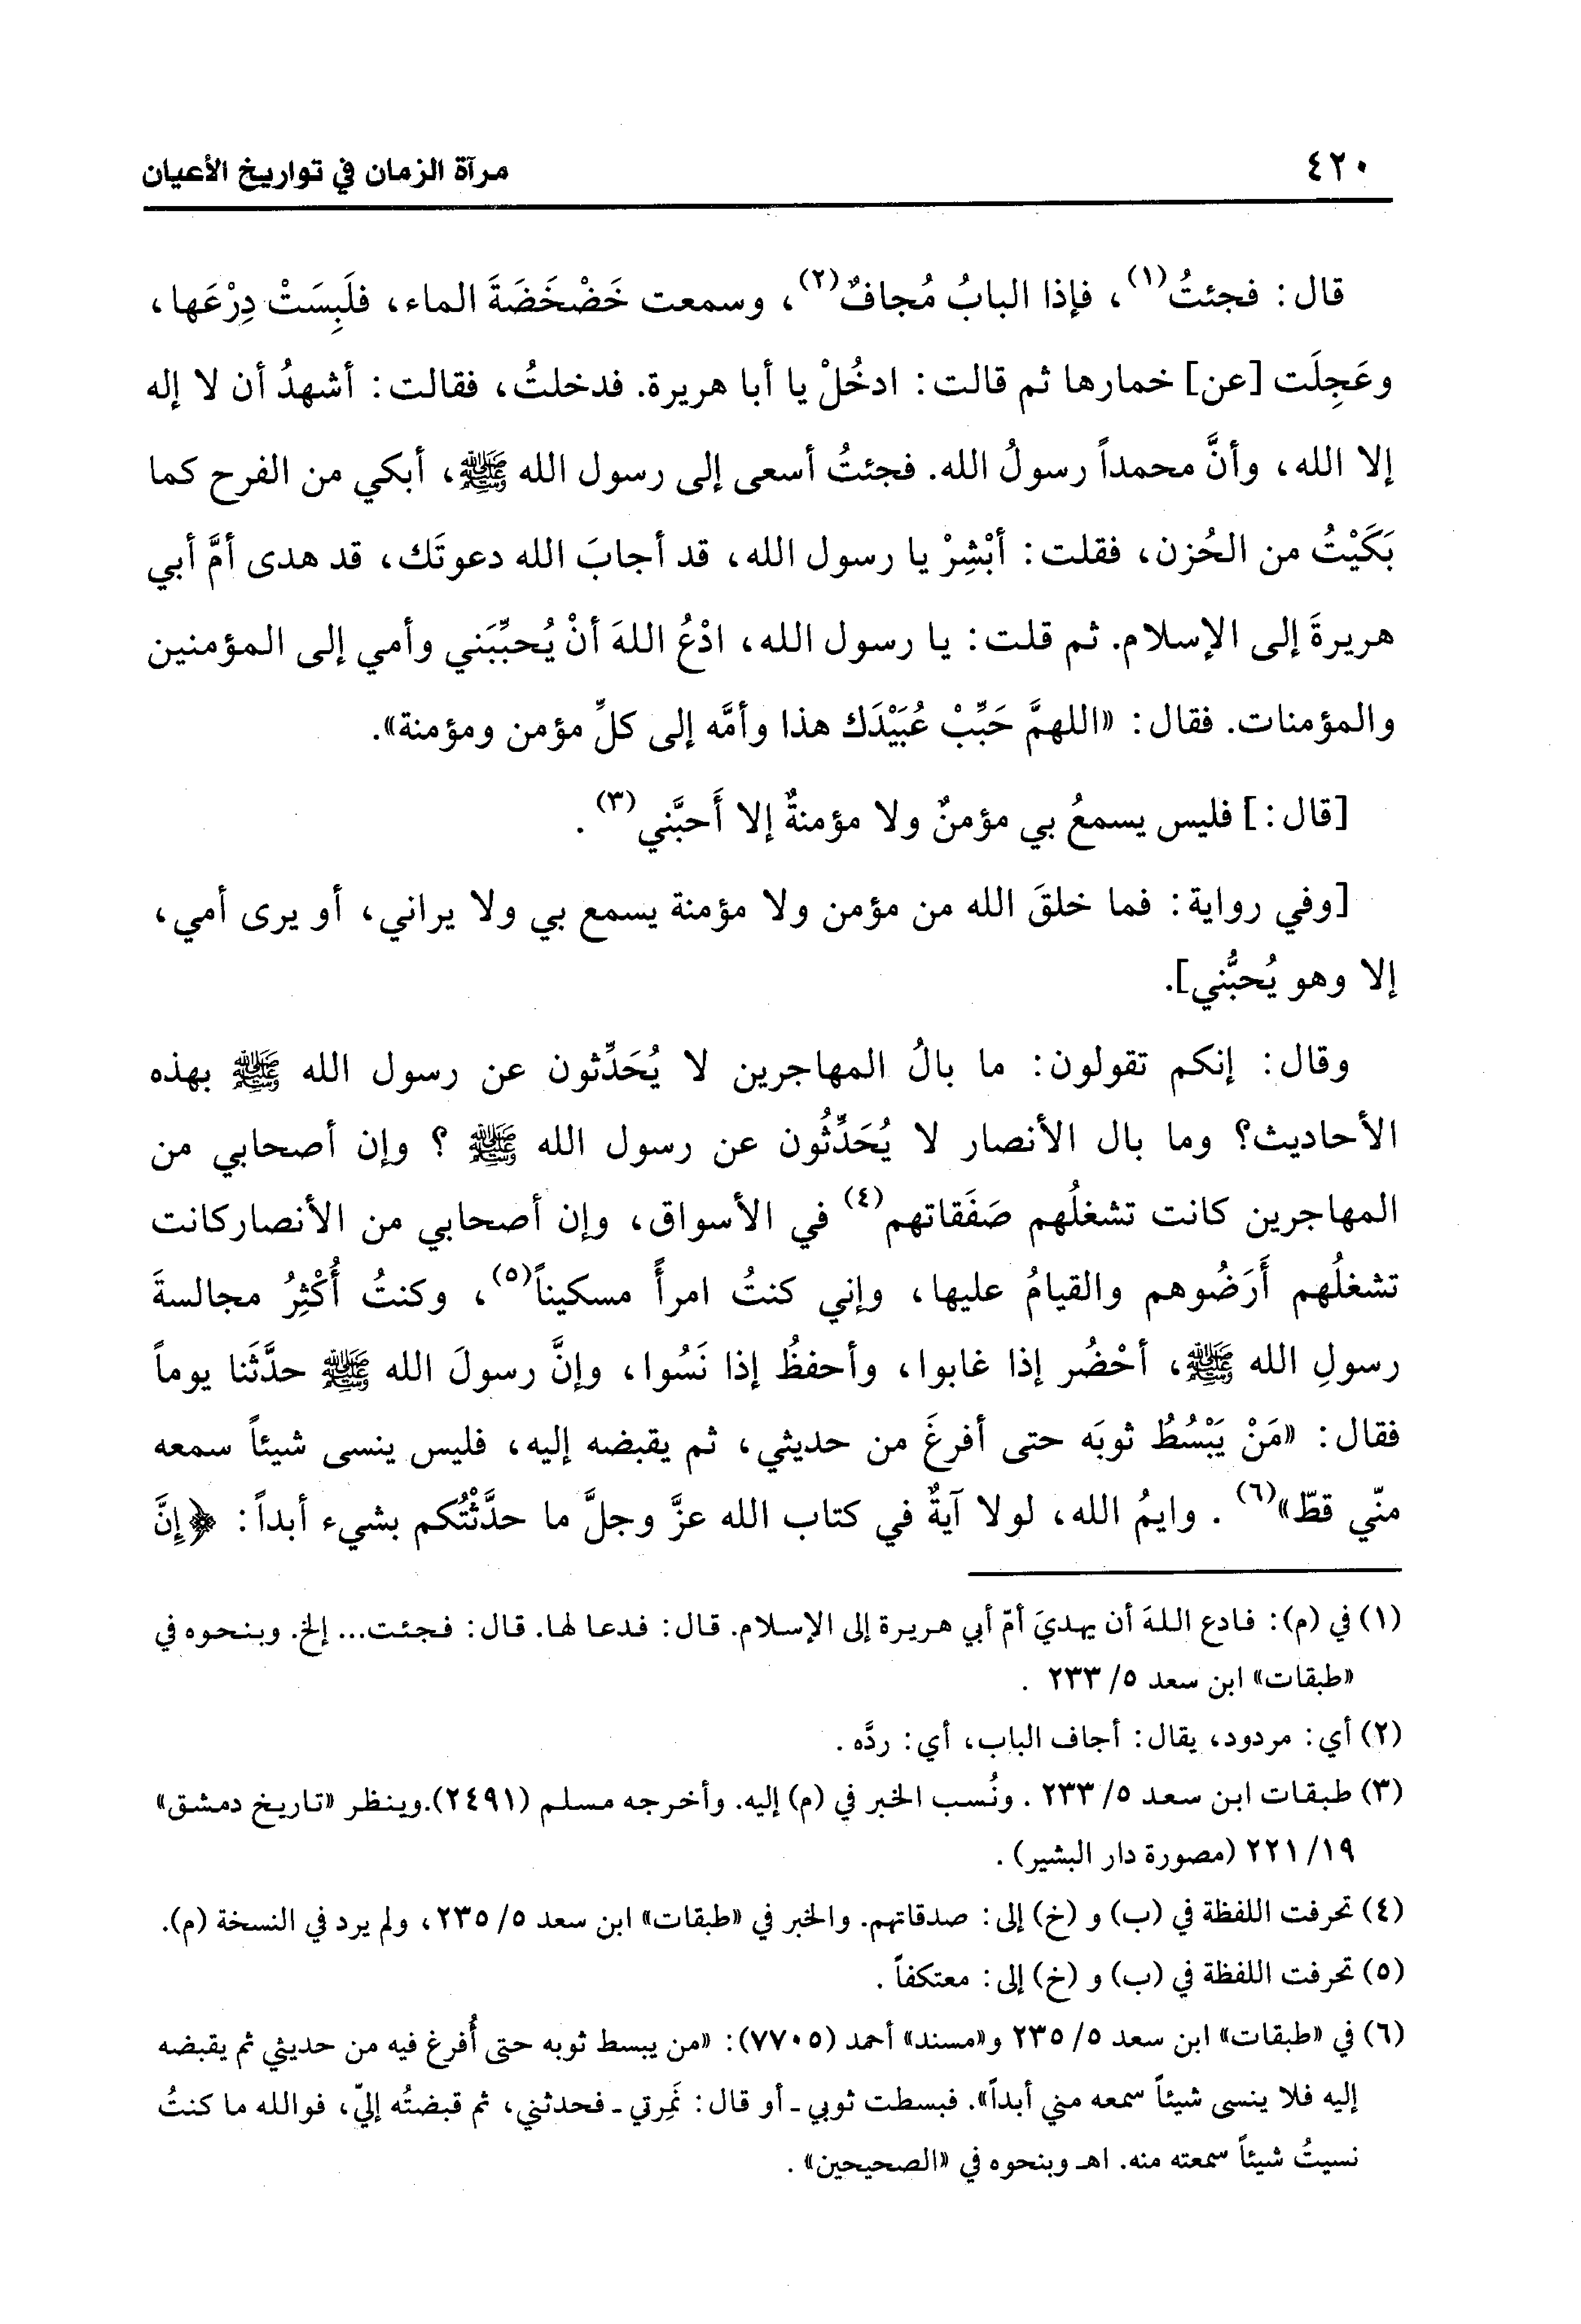 ٤٢٠ مرآة الزمان في تواريخ الأعيان
قال: فجئتُ(١)، فإذا البابُ مُجافٌ(٢)، وسمعت خَضْخَضَةَ الماء، فلَبِسَتْ دِرْعَها،
وعَجِلَت [عن] خمارها ثم قالت: ادخُلْ يا أبا هريرة. فدخلتُ، فقالت: أشهدُ أن لا إله
إلا الله، وأنَّ محمداً رسولُ الله. فجئتُ أسعى إلى رسول الله ﷺ، أبكي من الفرح كما
بَكَيْتُ من الحُزن، فقلت: أبْشِرْ يا رسول الله، قد أجابَ الله دعوتَك، قد هدى أمَّ أبي
هريرةَ إلى الإسلام. ثم قلت: يا رسول الله، ادْعُ اللهَ أنْ يُحبِّبَني وأمي إلى المؤمنين
والمؤمنات. فقال: «اللهمَّ حَبِّبْ عُبَيْدَك هذا وأمَّه إلى كلِّ مؤمن ومؤمنة».
[قال:] فليس يسمعُ بي مؤمنٌ ولا مؤمنةٌ إلا أَحبَّني(٣).
[وفي رواية: فما خلقَ الله من مؤمن ولا مؤمنة يسمع بي ولا يراني، أو يرى أمي،
إلا وهو يُحبُّني].
وقال: إنكم تقولون: ما بالُ المهاجرين لا يُحَدِّثون عن رسول الله ﷺ بهذه
الأحاديث؟ وما بال الأنصار لا يُحَدِّثُون عن رسول الله ﷺ ؟ وإن أصحابي من
المهاجرين كانت تشغلُهم صَفَقاتهم(٤) في الأسواق، وإن أصحابي من الأنصاركانت
تشغلُهم أَرَضُوهم والقيامُ عليها، وإني كنتُ امرأً مسكيناً(٥)، وكنتُ أُكْثِرُ مجالسةَ
رسولِ الله ﷺ، أحْضُر إذا غابوا، وأحفظُ إذا نَسُوا، وإنَّ رسولَ الله ﷺ حدَّثَنا يوماً
فقال: «مَنْ يَبْسُطُ ثوبَه حتى أفرغَ من حديثي، ثم يقبضه إليه، فليس ينسى شيئاً سمعه
منّي قطّ»(٦). وايمُ الله، لولا آيةٌ في كتاب الله عزَّ وجلَّ ما حدَّثْتُكم بشيء أبداً: ﴿إِنَّ
(١) في (م): فادع اللهَ أن يهديَ أمّ أبي هريرة إلى الإسلام. قال: فدعا لها. قال: فجئت... إلخ. وبنحوه في
«طبقات» ابن سعد ٥/ ٢٣٣ .
(٢) أي: مردود، يقال: أجاف الباب، أي: ردَّه .
(٣) طبقات ابن سعد ٥/ ٢٣٣ . ونُسب الخبر في (م) إليه. وأخرجه مسلم (٢٤٩١).وينظر «تاريخ دمشق»
١٩/ ٢٢١ (مصورة دار البشير) .
(٤) تحرفت اللفظة في (ب) و (خ) إلى: صدقاتهم. والخبر في «طبقات» ابن سعد ٥/ ٢٣٥، ولم يرد في النسخة (م).
(٥) تحرفت اللفظة في (ب) و (خ) إلى: معتكفاً .
(٦) في «طبقات» ابن سعد ٥/ ٢٣٥ و«مسند» أحمد (٧٧٠٥): «من يبسط ثوبه حتى أُفرغ فيه من حديثي ثم يقبضه
إليه فلا ينسى شيئاً سمعه مني أبداً». فبسطت ثوبي ـ أو قال: نَمِرتي ـ فحدثني، ثم قبضتُه إليّ، فوالله ما كنتُ
نسيتُ شيئاً سمعته منه. اهـ وبنحوه في «الصحيحين» .